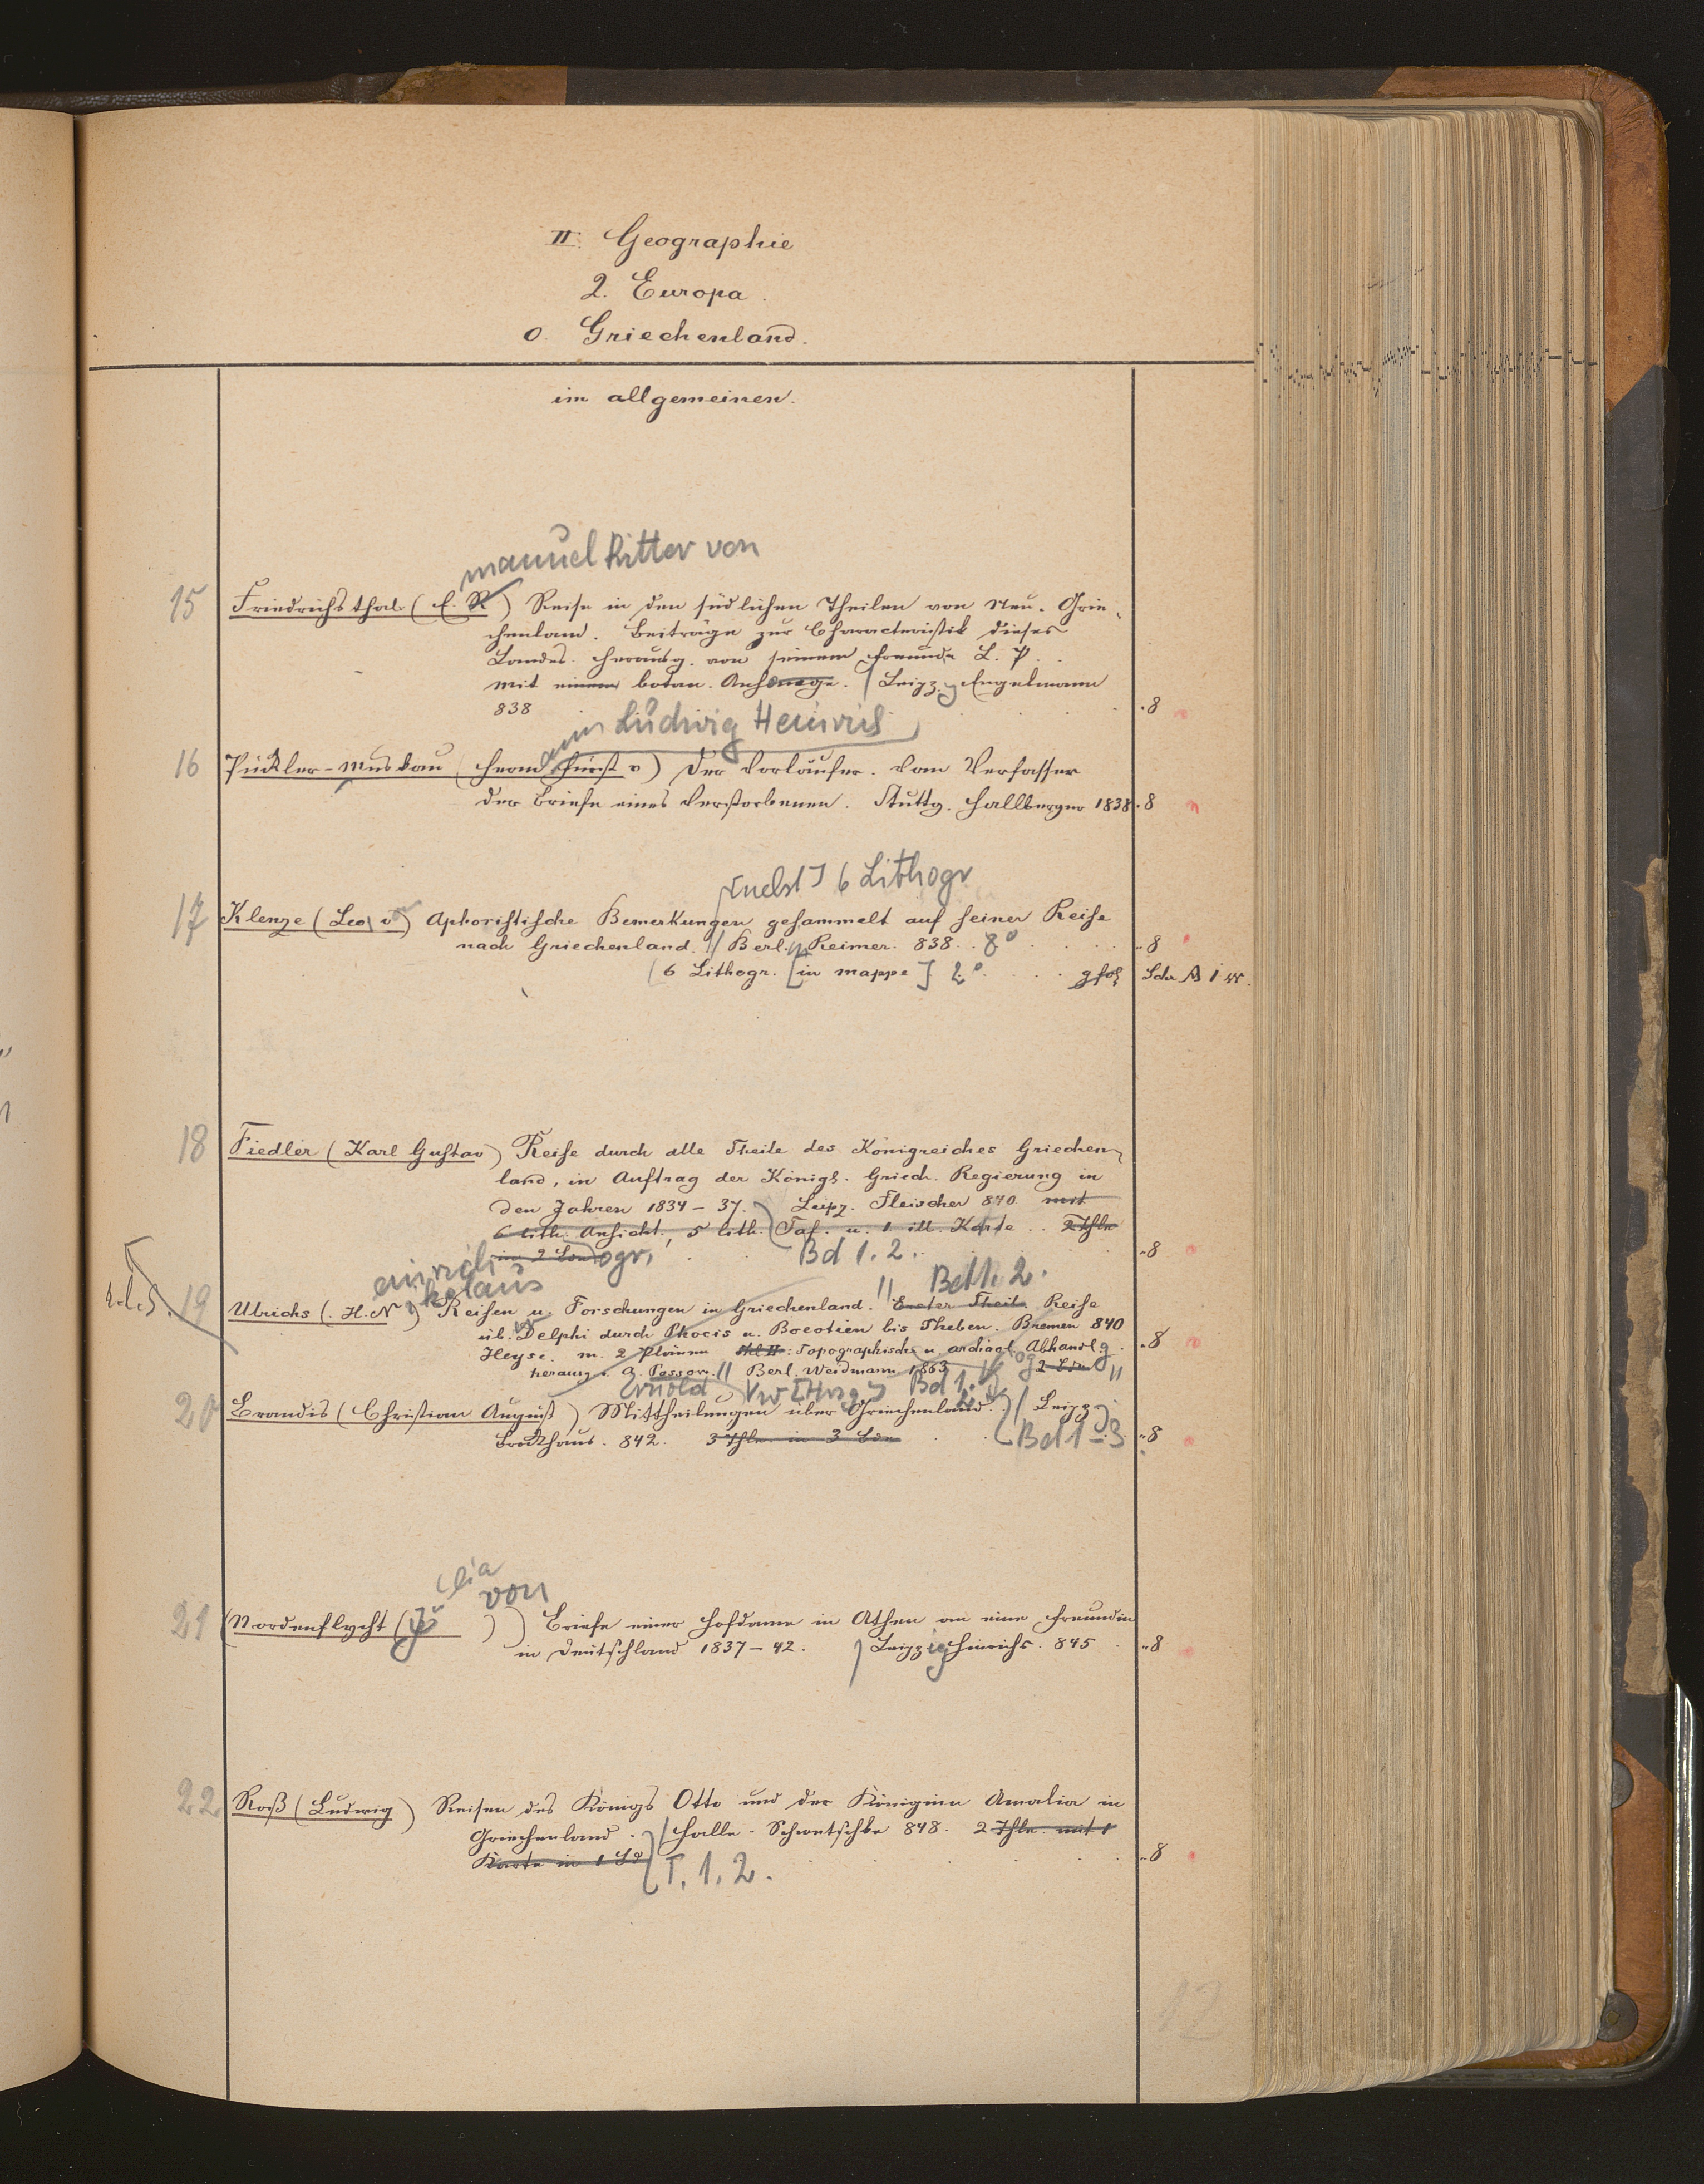 II. Geographie
2. Europa.
o. Griechenland.
im allgemeinen.
manuel Ritter von
15 Friedrichsthal (E. R) Reise in den südlichen Theilen von Neu-Grie-
chenland. Beiträge zur Characteristik dieses
Landes. Herausg. von seinem Freunde L. P.
mit einem botan. Anhange. / Leipz. Engelmann
838 . 8
ann Ludwig Heinrich
16 Pückler-Muskau (Herm. Fürst v) Der Vorläufer. Vom Verfasser
der Briefe eines Verstorbenen. Stuttg. Hallberger 1838 . 8
[nebst] 6 Lithogr
17 Klenze (Leo v.) Aphoristische Bemerkungen gesammelt auf seiner Reise
nach Griechenland. // Berl. Reimer. 838. 8° . 8
(6 Lithogr. [in mappe] 2°. gfol Schr A i
18 Fiedler (Karl Gustav) Reise durch alle Theile des Königreiches Griechen-
land, in Auftrag der Königl. Griech. Regierung in
den Jahren 1834-37. Leipz. Fleischer 840. mit
6 lith. Ansicht., 5 lith. Taf. u. 1 ill. Karte .. 2 Thle
in 2 Bdn ogr, Bd 1. 2. . 8
einrich kolaus // Bdch. 2.
19 Ulrichs (H. N) Reisen u. Forschungen in Griechenland. Erster Theil. Reise
üb. Delphi durch Phocis u. Boeotien bis Theben. Bremen 840
Heyse. m. 2 Plänen Thl II: Topographische u. archäol. Abhandlg . 8
herausg v. A. Passow. // Berl. Weidmann 1863 2 Bde //
Arnold [Hrsg] Bd 1. 2
20 Brandis (Christian August) Mittheilungen über Griechenland. / Leipz
Brockhaus. 842. 3 Thle. in 3 Bdn Bd 1-3 . 8
ulia von
21 (Nordenflycht (Ju )) Briefe einer Hofdame in Athen an eine Freundin
in Deutschland 1837-42. / Leipzig Hinrichs. 845 . 8
22 Roß (Ludwig) Reisen des Königs Otto und der Königinn Amalia in
Griechenland. / Halle. Schwetschke 848. 2 Thle. mit 1
Karte in 1 Bd T. 1. 2. . 8
12